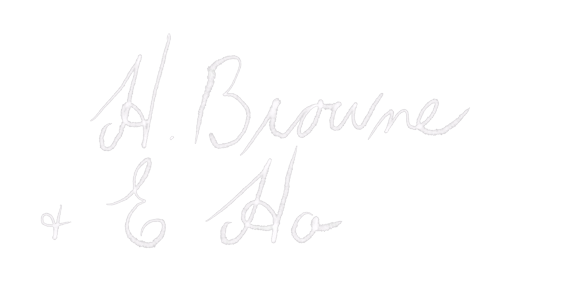 H. Browne
& E Ho